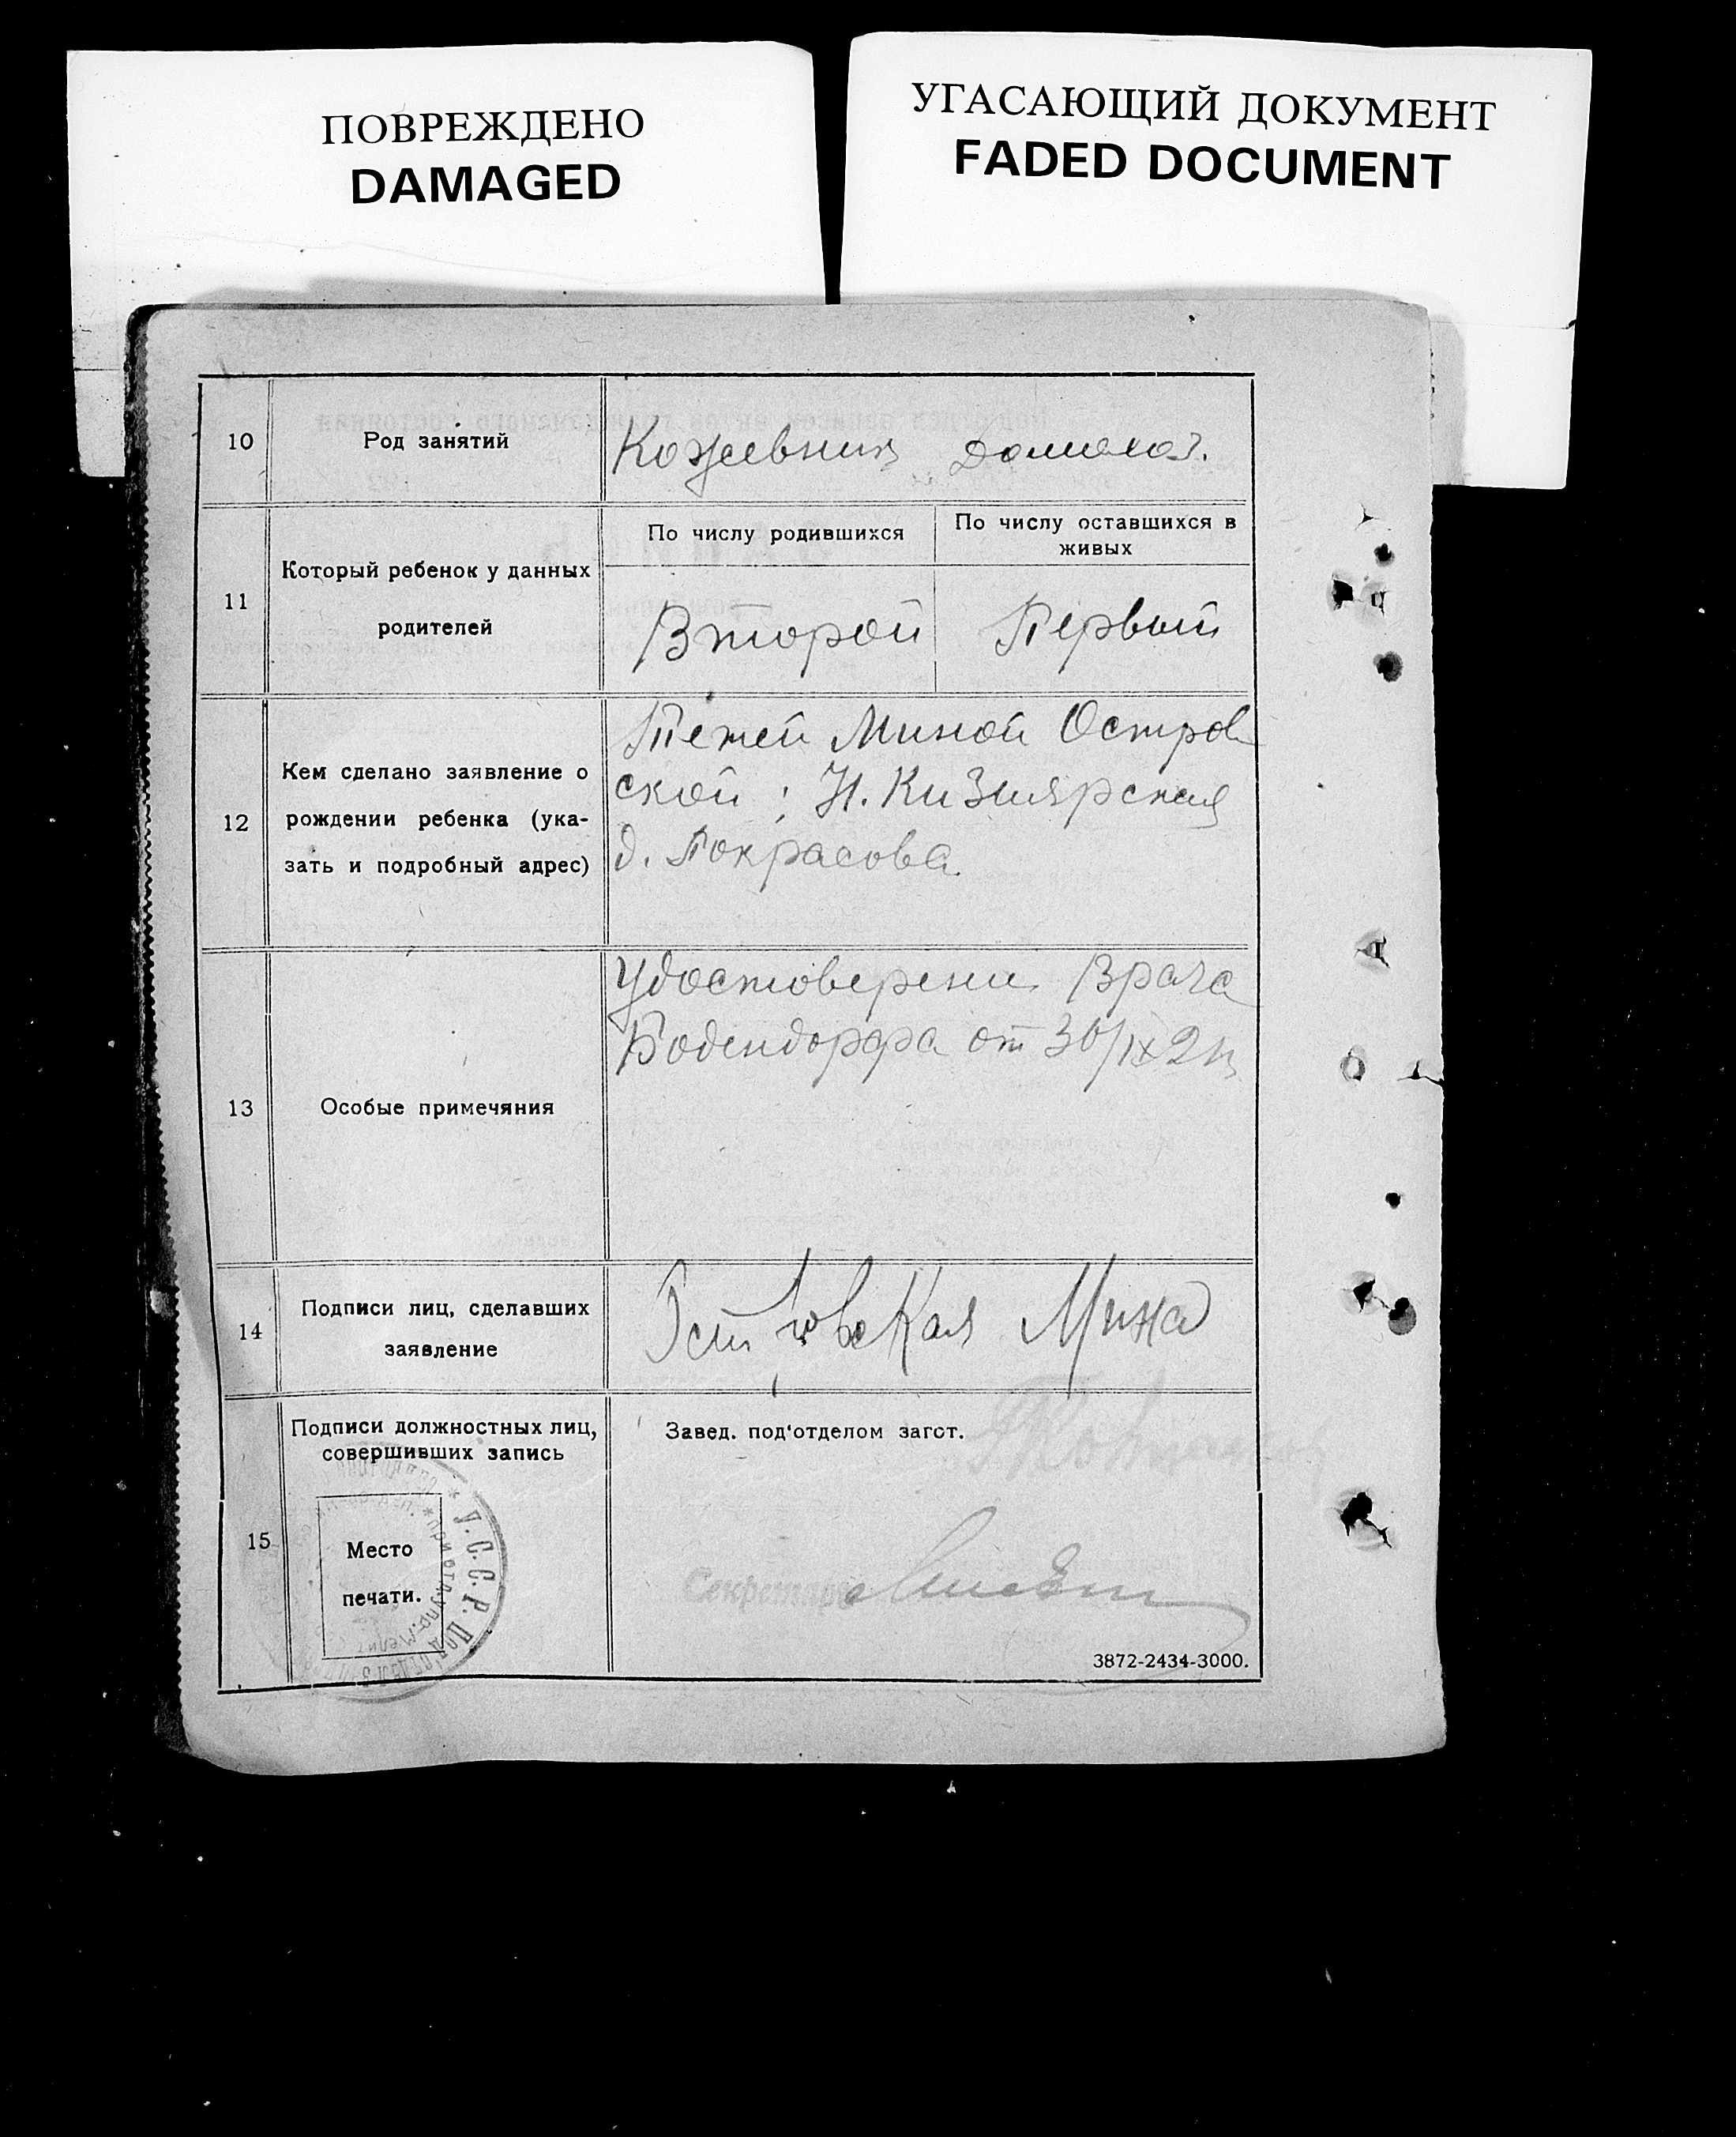 ПОВРЕЖДЕНО
DAMAGED
УГАСАЮЩИЙ ДОКУМЕНТ
FADED DOCUMENT
10 Род занятий Кожевник домохоз.
11 Который ребенок у данных родителей
По числу родившихся По числу оставшихся в живых
Второй Первый
12 Кем сделано заявление о
рождении ребенка (ука-
зать и подробный адрес)
Тетей Миной Остров
ской; Н. Кизиярская
д. Покрасова
13 Особые примечяния
Удостоверени. Врача
Бодендорфа от 30/IX
14 Подписи лиц, сделавших
заявление
Мина
15 Подписи должностных лиц,
совершивших запись
Место
печати.
У.С.С.Р.
Завед. под'отделом загст.
Секретарь
3872-2434-3000.